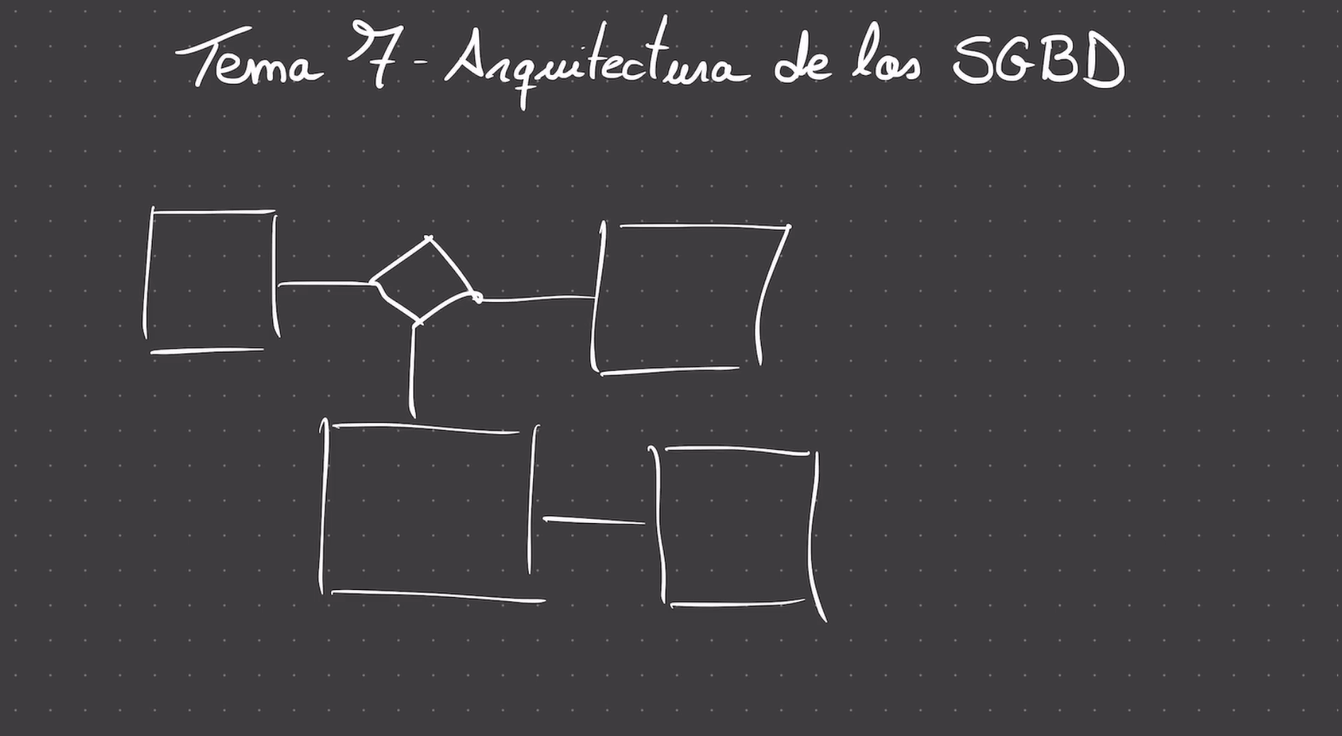 Tema 7 - Arquitectura de los SGBD